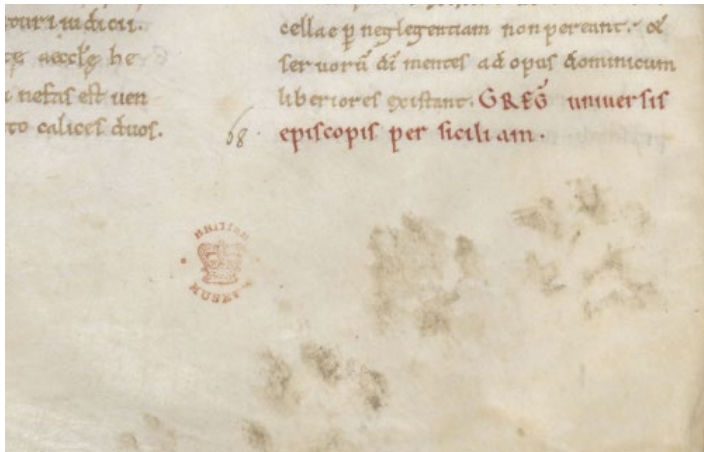 iudicii.
aecclę he
nefas est uen
to calices duos.
cellae p̄ neglegentiam non pereant. &
seruorū dī mentes ad opus dominicum
liberiores existant. GREḠ uniuersis
68.
episcopis per siciliam.
BRITISH
MUSEUM